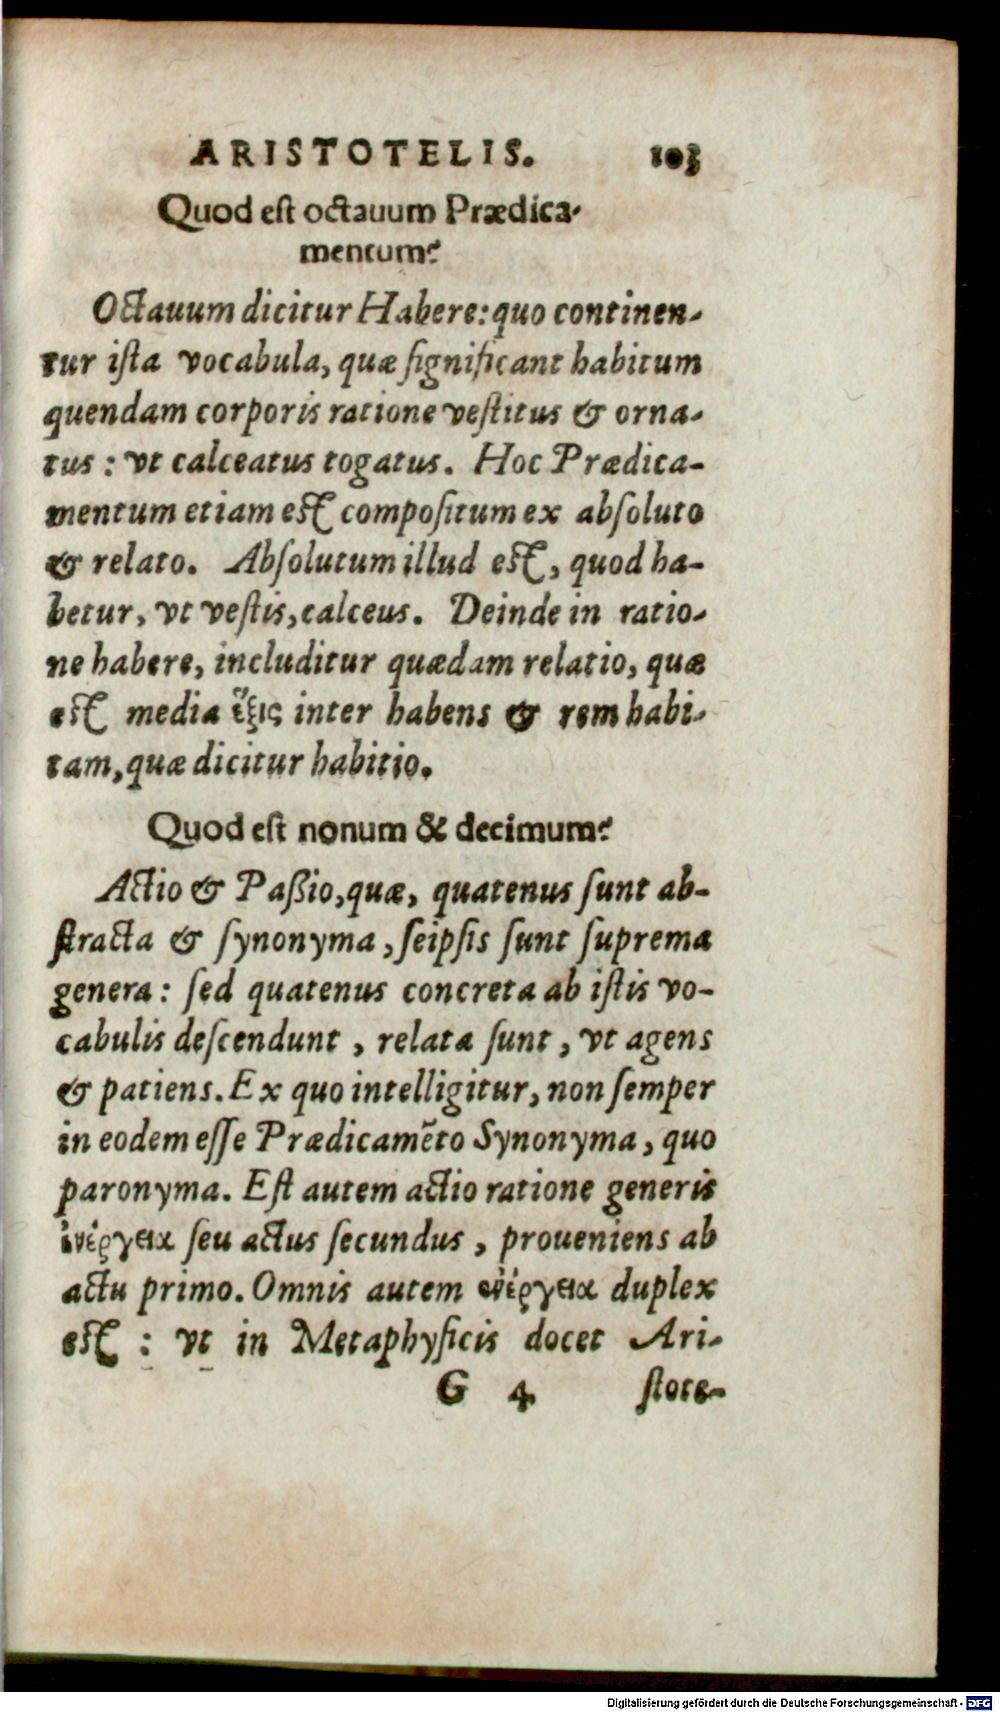 ARISTOTELIS. 103
Quod est octauum Prædica-
mentum?
Octauum dicitur Habere: quo continen-
tur ista vocabula, quæ significant habitum
quendam corporis ratione vestitus & orna-
tus: vt calceatus togatus. Hoc Prædica-
mentum etiam est compositum ex absoluto
& relato. Absolutum illud est, quod ha-
betur, vt vestis, calceus. Deinde in ratio-
ne habere, includitur quædam relatio, quæ
est media ἕξις inter habens & rem habi-
tam, quæ dicitur habitio.
Quod est nonum & decimum?
Actio & Paßio, quæ, quatenus sunt ab-
stracta & synonyma, seipsis sunt suprema
genera: sed quatenus concreta ab istis vo-
cabulis descendunt, relata sunt, vt agens
& patiens. Ex quo intelligitur, non semper
in eodem esse Prædicamẽto Synonyma, quo
paronyma. Est autem actio ratione generis
ἐνέργεια seu actus secundus, proueniens ab
actu primo. Omnis autem ἐνέργεια duplex
est: vt in Metaphysicis docet Ari-
G 4 stote-
Digitalisierung gefördert durch die Deutsche Forschungsgemeinschaft - DFG